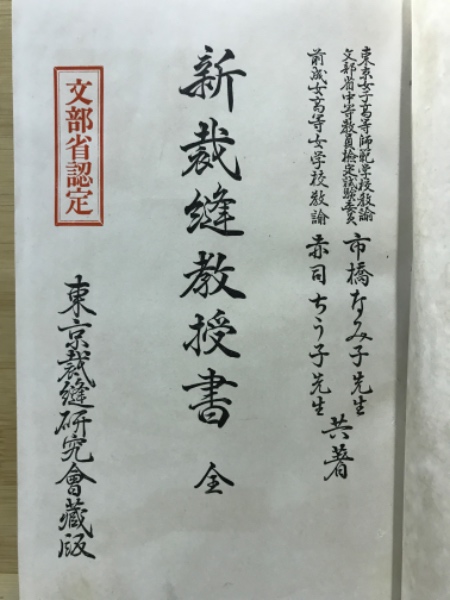 東京女子高等師範学校教諭
文部省中等教員検定試験委員
市橋なみ子先生
前成女高等女学校教諭
赤司ちう子先生
共著
新裁縫教授書 全
文部省認定
東京裁縫研究會藏版